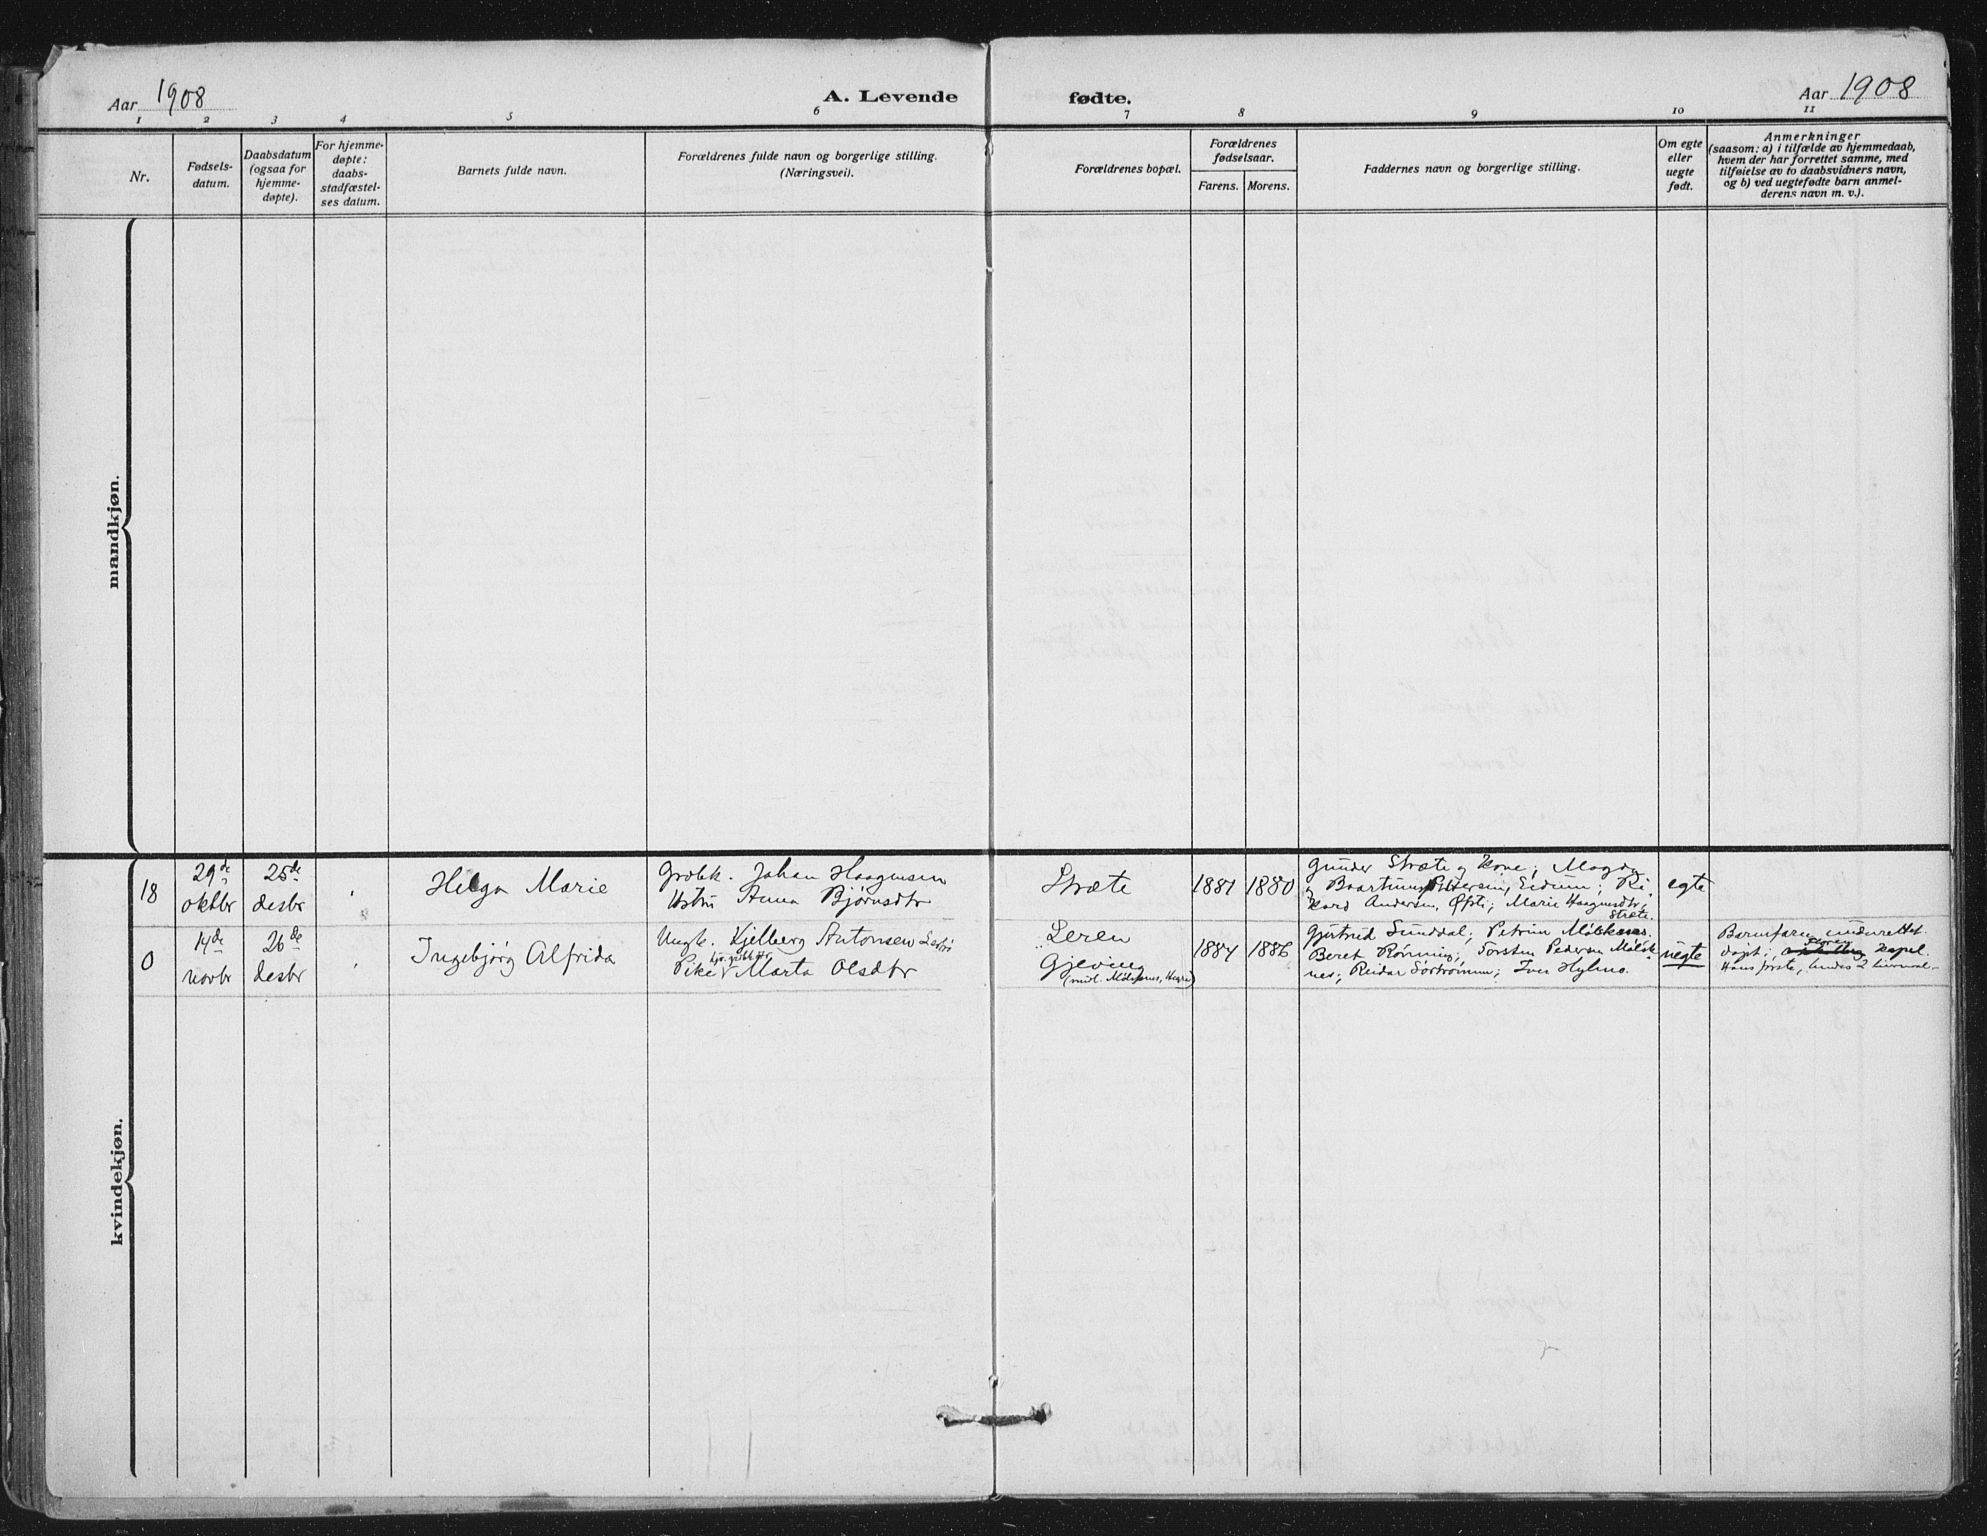 Aar 1908
A. Levende fødte.
Aar 1908
1 2 3 4 5 6 7 8 9 10 11
Nr.
Fødsels-
datum.
Daabsdatum
(ogsaa for
hjemme-
døpte).
For hjemme-
døpte:
daabs-
stadfæstel-
ses datum.
Barnets fulde navn.
Forældrenes fulde navn og borgerlige stilling.
(Næringsvei).
Forældrenes bopæl.
Forældrenes
fødselsaar.
Farens. Morens.
Faddernes navn og borgerlige stilling.
Om egte
eller
uegte
født.
Anmerkninger
(saasom: a) i tilfælde av hjemmedaab,
hvem der har forrettet samme, med
tilføielse av to daabsvidners navn,
og b) ved uegtefødte barn anmel-
derens navn m. v.).
mandkjøn.
kvindekjøn.
18
29de
oktbr
25de
desbr
Helga Marie
Grbk. Johan Haagensen
Hstru Anna Bjørnsdtr
Stræte
1881
1880
Gunder Stræte og Kone; Magda
og Baartinus Petersen, Eidum; Ri-
kard Andersen, Øfsti; Marie Haagensdtr,
Stræte.
egte
0
14de
novbr
26de
desbr
Ingebjørg Alfrida
Ungk. Kjelberg Antonsen
Pike Marta Olsdtr
Leren
Gjevi
1884
1886
Gjertrud Sunddal; Petrin
Beret Rønning; Torsten Pedersen
nes; Reidar Sørtrømmen; Iver Hylmo.
uegte
Barnefaren underrettet.
døpt; kapel.
Hans første, hendes 2